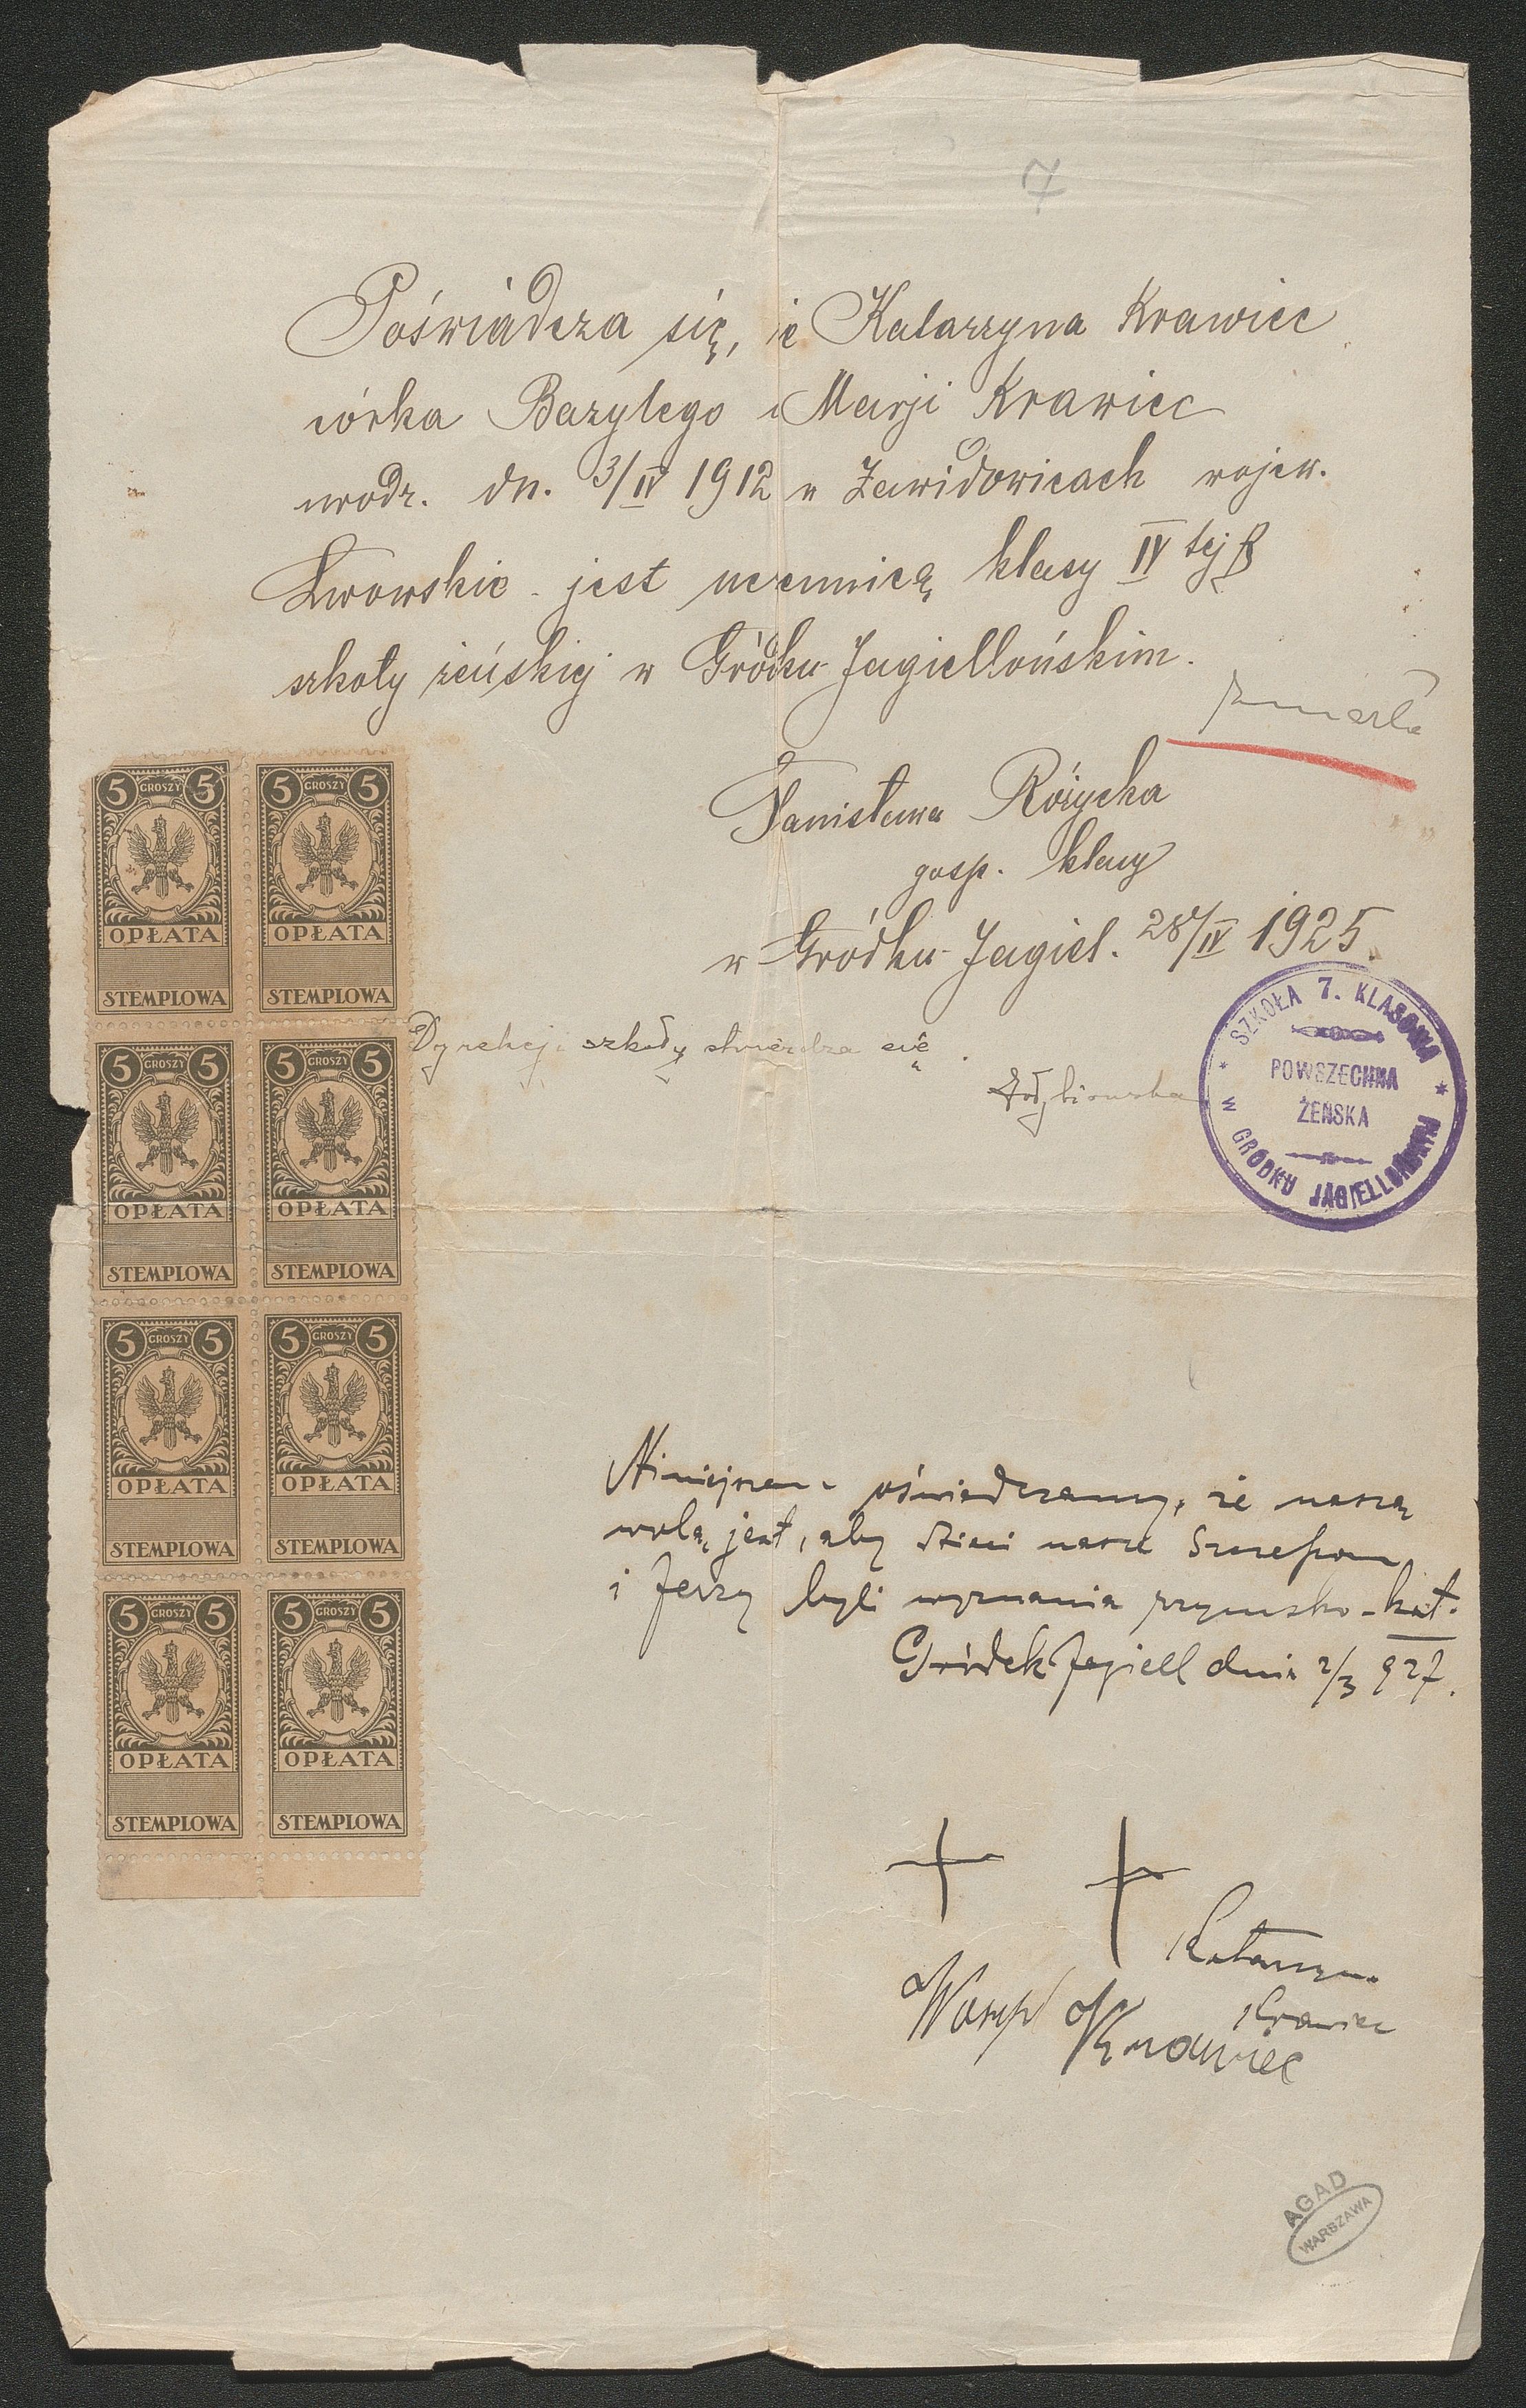 7
Poświadcza się, że Katarzyna Krawiec
córka Bazylego i Marji Krawiec
urodz. dn. 3/IV 1912 w Zawidowicach wojew.
Lwowskie jest uczennicą klasy IV tej B
szkoły żeńskiej w Gródku Jagiellońskim.
zmarła
Stanisława Różycka
gosp. klasy
w Gródku Jagiel. 28/IV 1925.
Dyrekcja szkoły stwierdza się.
SZKOŁA 7. KLASOWA
POWSZECHNA
ŻEŃSKA
W GRÓDKU JAGIELLOŃSKIM
5 GROSZY 5 5 GROSZY 5
OPŁATA OPŁATA
STEMPLOWA STEMPLOWA
5 GROSZY 5 5 GROSZY 5
OPŁATA OPŁATA
STEMPLOWA STEMPLOWA
5 GROSZY 5 5 GROSZY 5
OPŁATA OPŁATA
STEMPLOWA STEMPLOWA
5 GROSZY 5 5 GROSZY 5
OPŁATA OPŁATA
STEMPLOWA STEMPLOWA
Niniejszem oświadczamy, że naszą
wolą jest, aby dzieci nasze Szczepan
i Jerzy byli wyznania rzymsko-kat.
Gródek Jagiell dnia 2/3 927.
Katarzyna
Krawiec
Wasyl Krawiec
AGAD
WARSZAWA